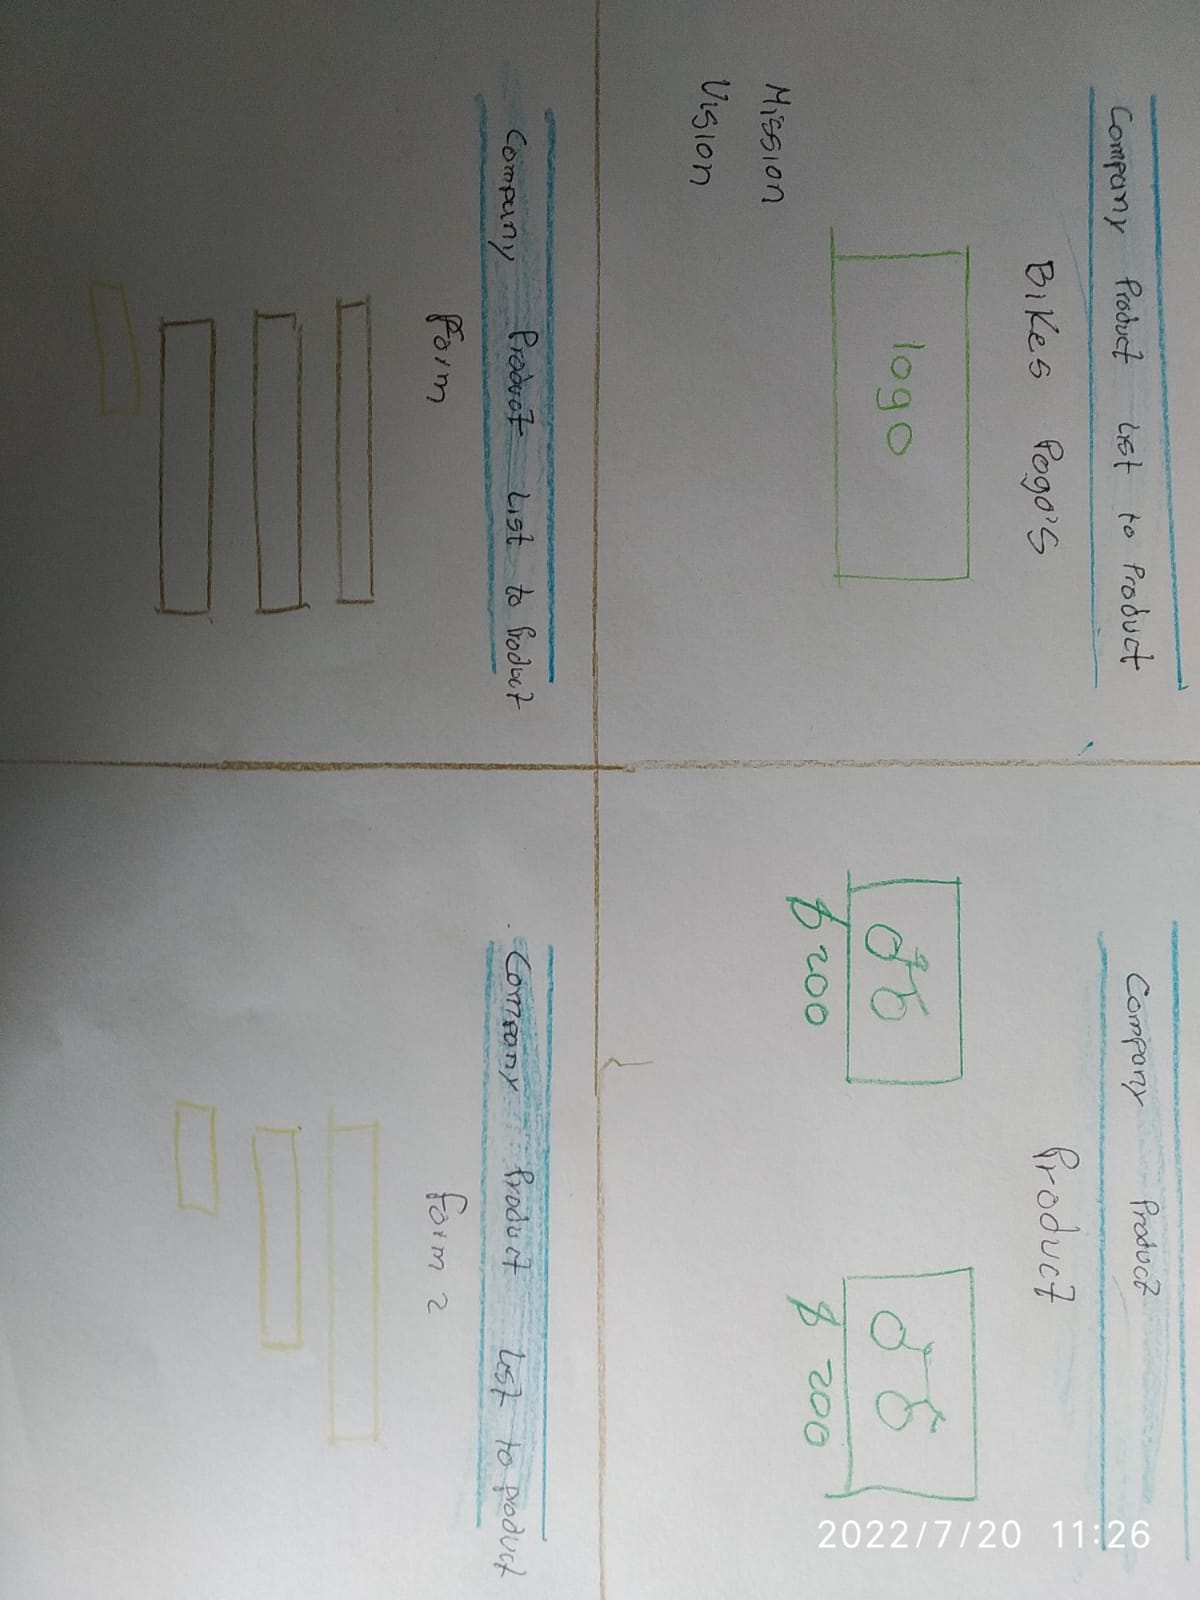 Company Product List to Product
Bikes Pogo's
logo
Mission
Vision
Company Product
Product
$ 200
$ 200
Company Product List to Product
Form
Company Product List to product
form 2
2022/7/20 11:26